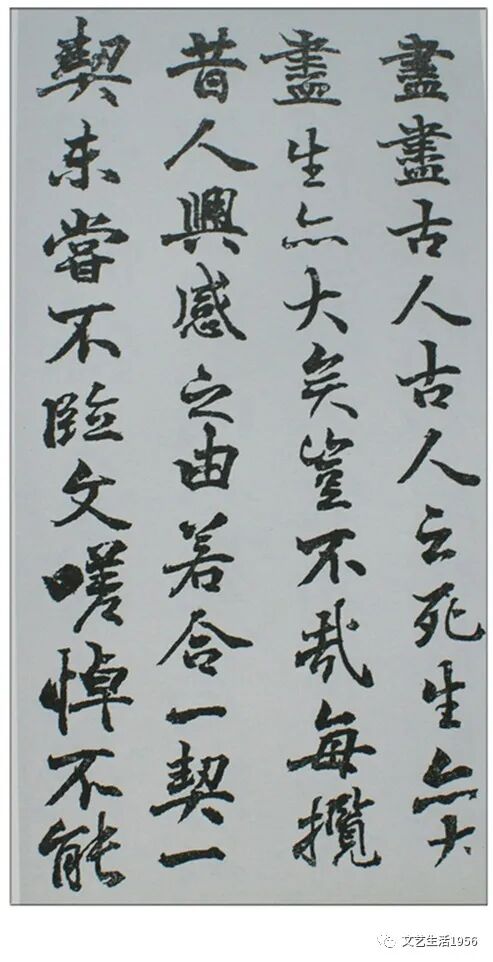 盡盡古人古人云死生亦大
盡生亦大矣豈不哉每攬
昔人興感之由若合一契一
契未嘗不臨文嗟悼不能
文艺生活1956